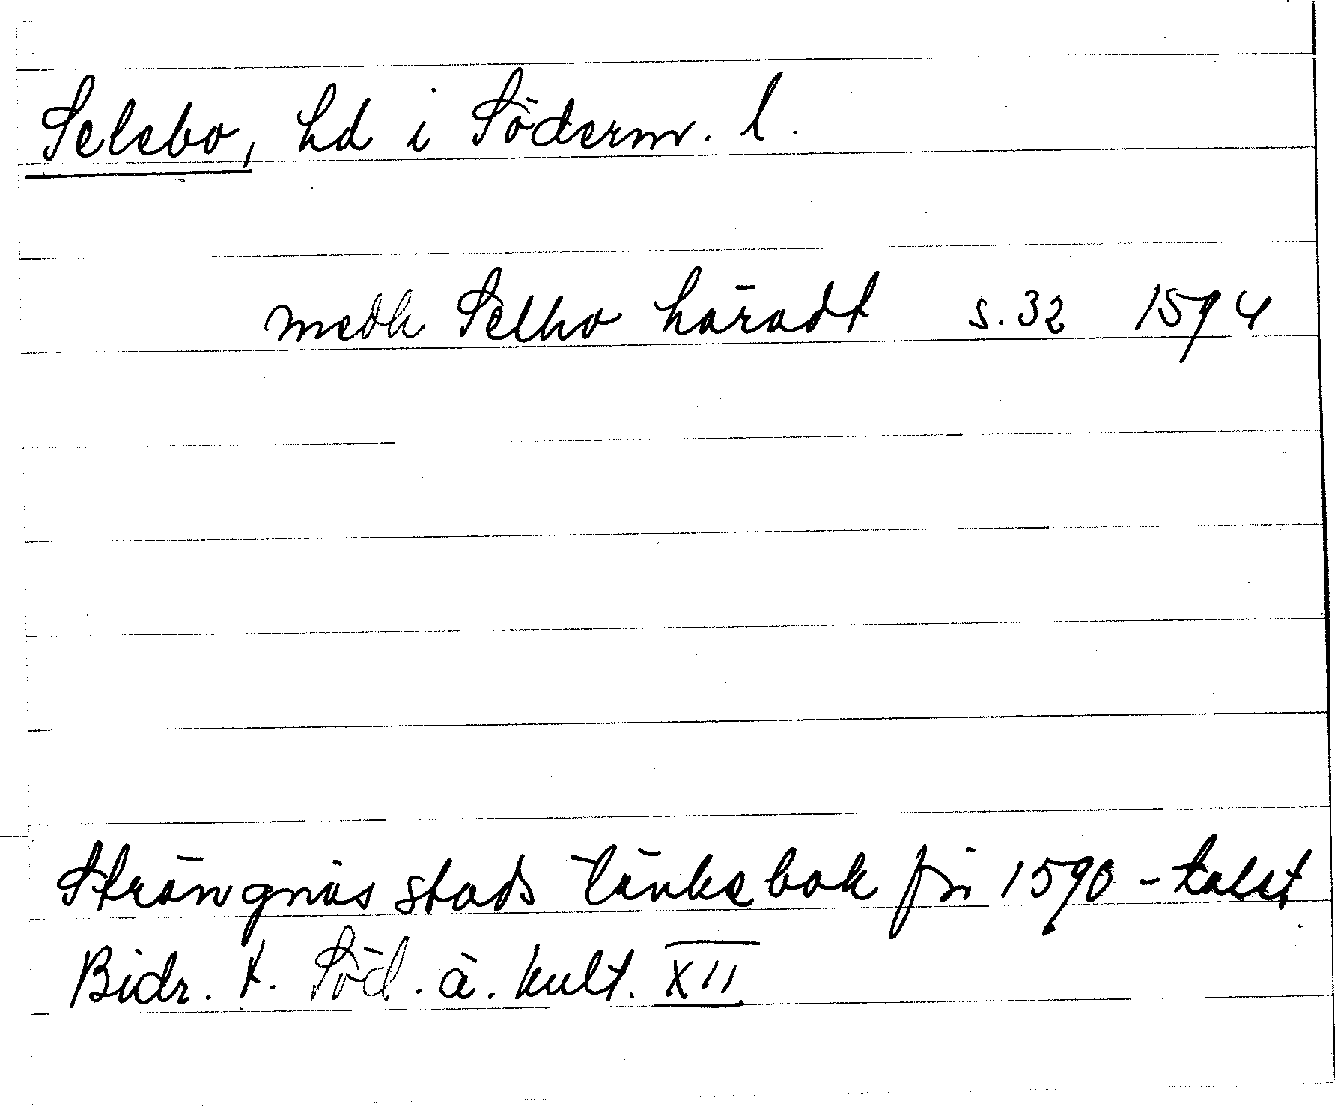 Selebo, hd i Söderm. l.
medh Selbo häradt s. 32 1594
Strängnäs stads tänkebok från 1590-talet
Bidr. t. Söd. ä. kult. XII